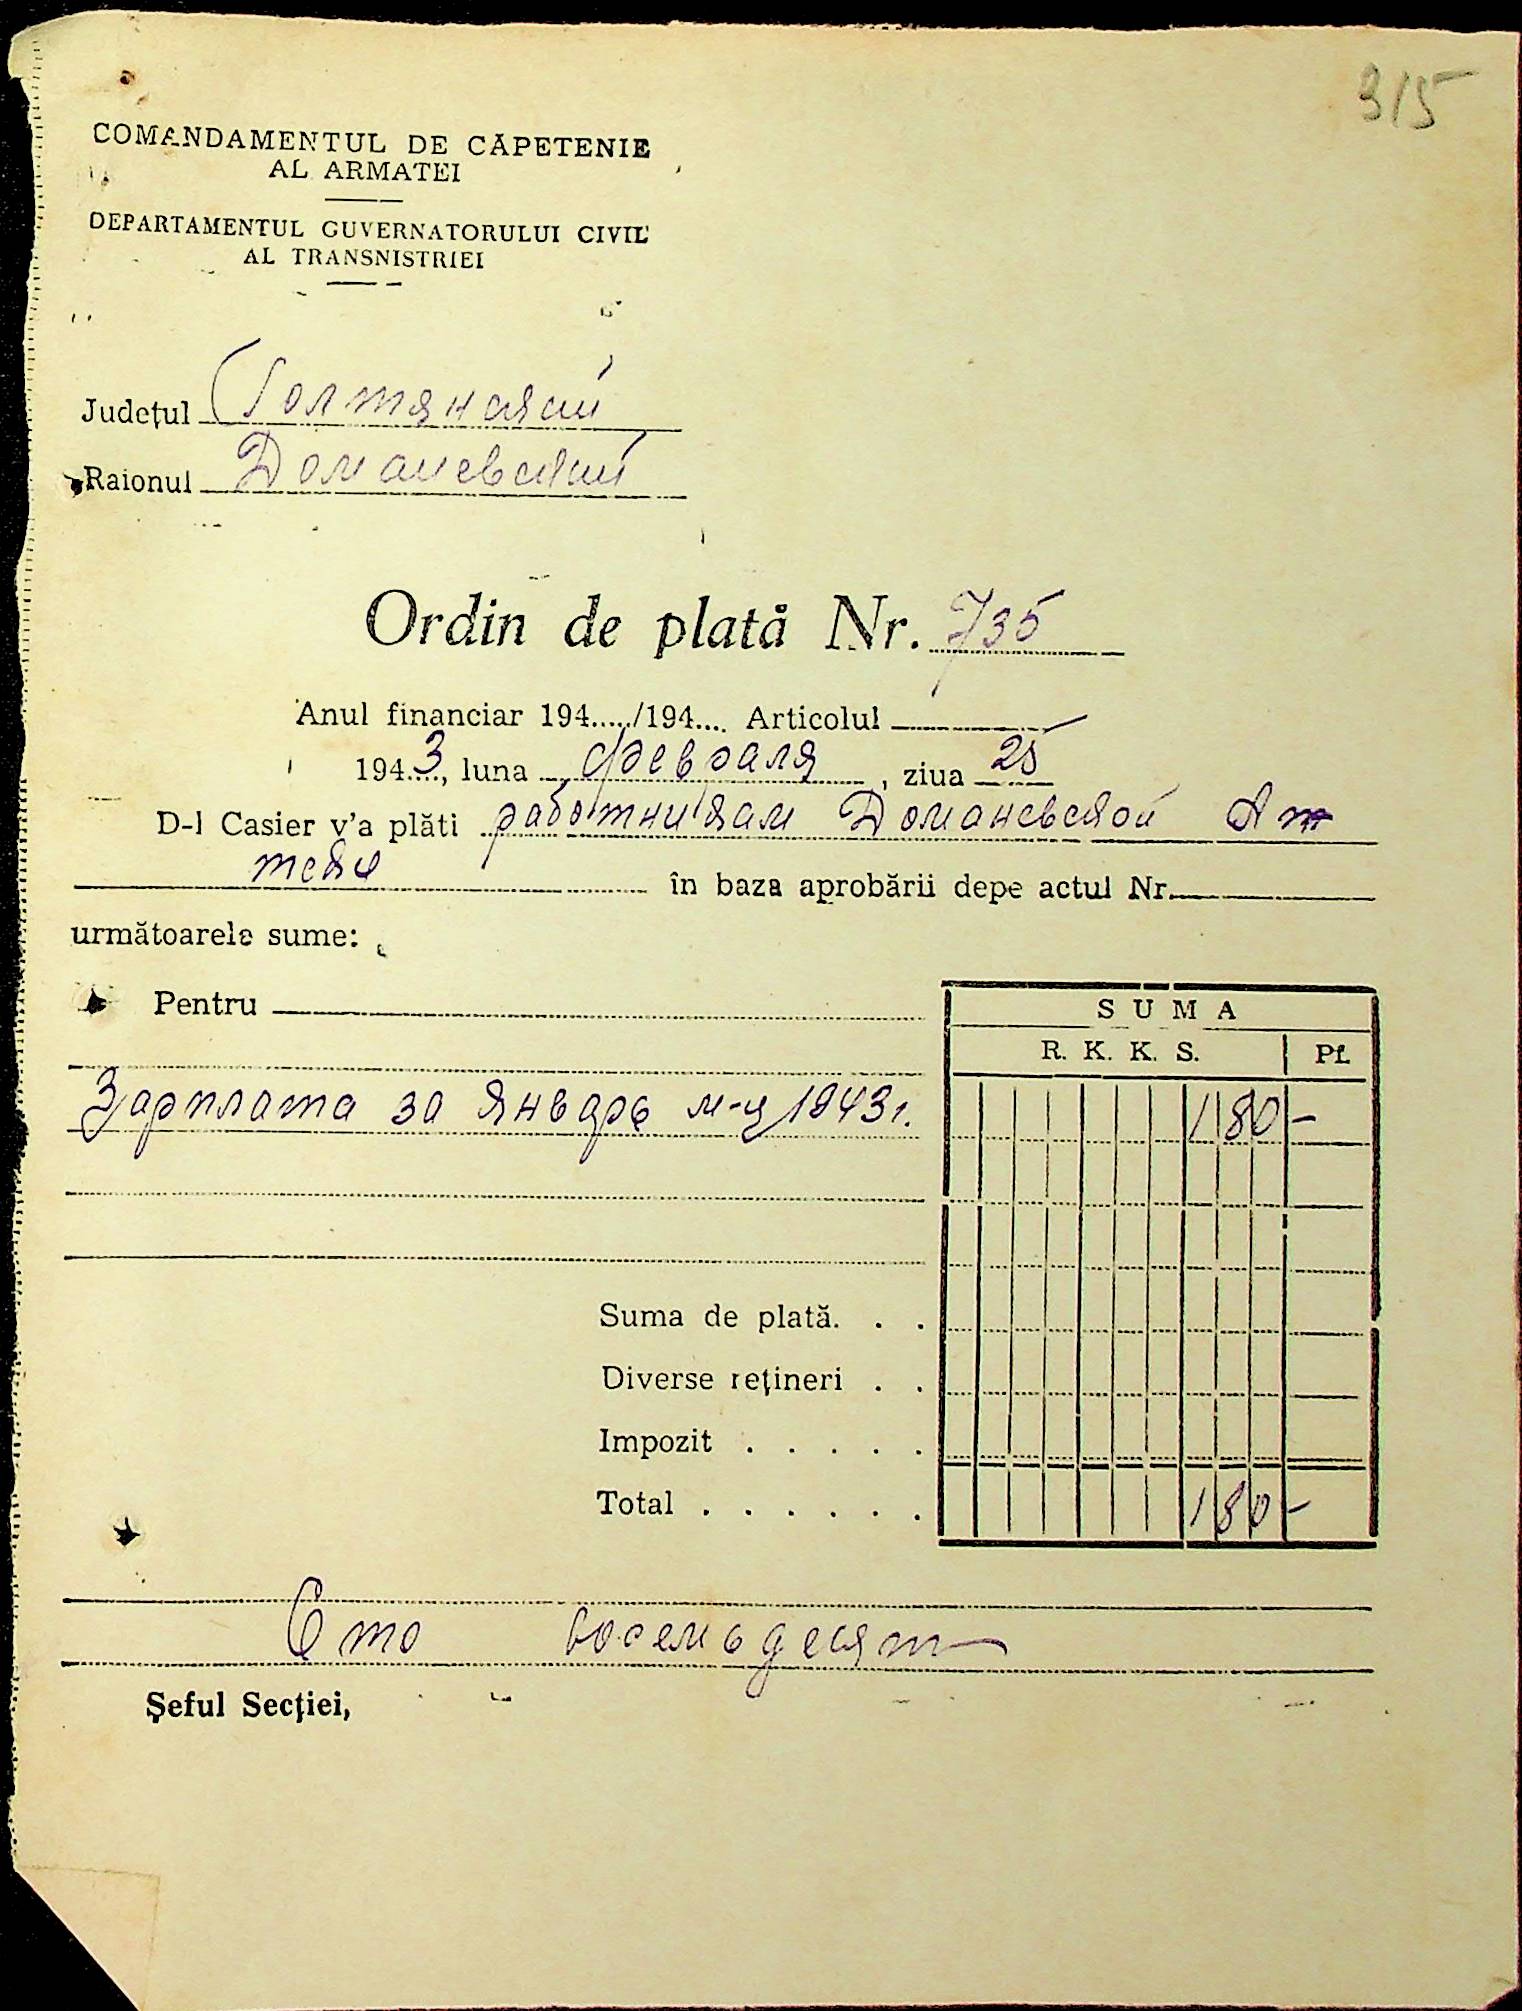 315
COMANDAMENTUL DE CĂPETENIE
AL ARMATEI
DEPARTAMENTUL GUVERNATORULUI CIVIL
AL TRANSNISTRIEI
Județul Голтянский
Raionul Доманевский
Ordin de plată Nr. 735
Anul financiar 194...../194.... Articolul
1943, luna февраля, ziua 25
D-l Casier v'a plăti работникам Доманевской Ап
теки în baza aprobării depe actul Nr.
următoarele sume:
Pentru
SUMA
R. K. K. S. Pf.
Зарплата за январь м-ц 1943г. 180 -
Suma de plată. . .
Diverse rețineri . .
Impozit . . . . .
Total . . . . . . 180 -
Сто восемьдесят
Șeful Secției,